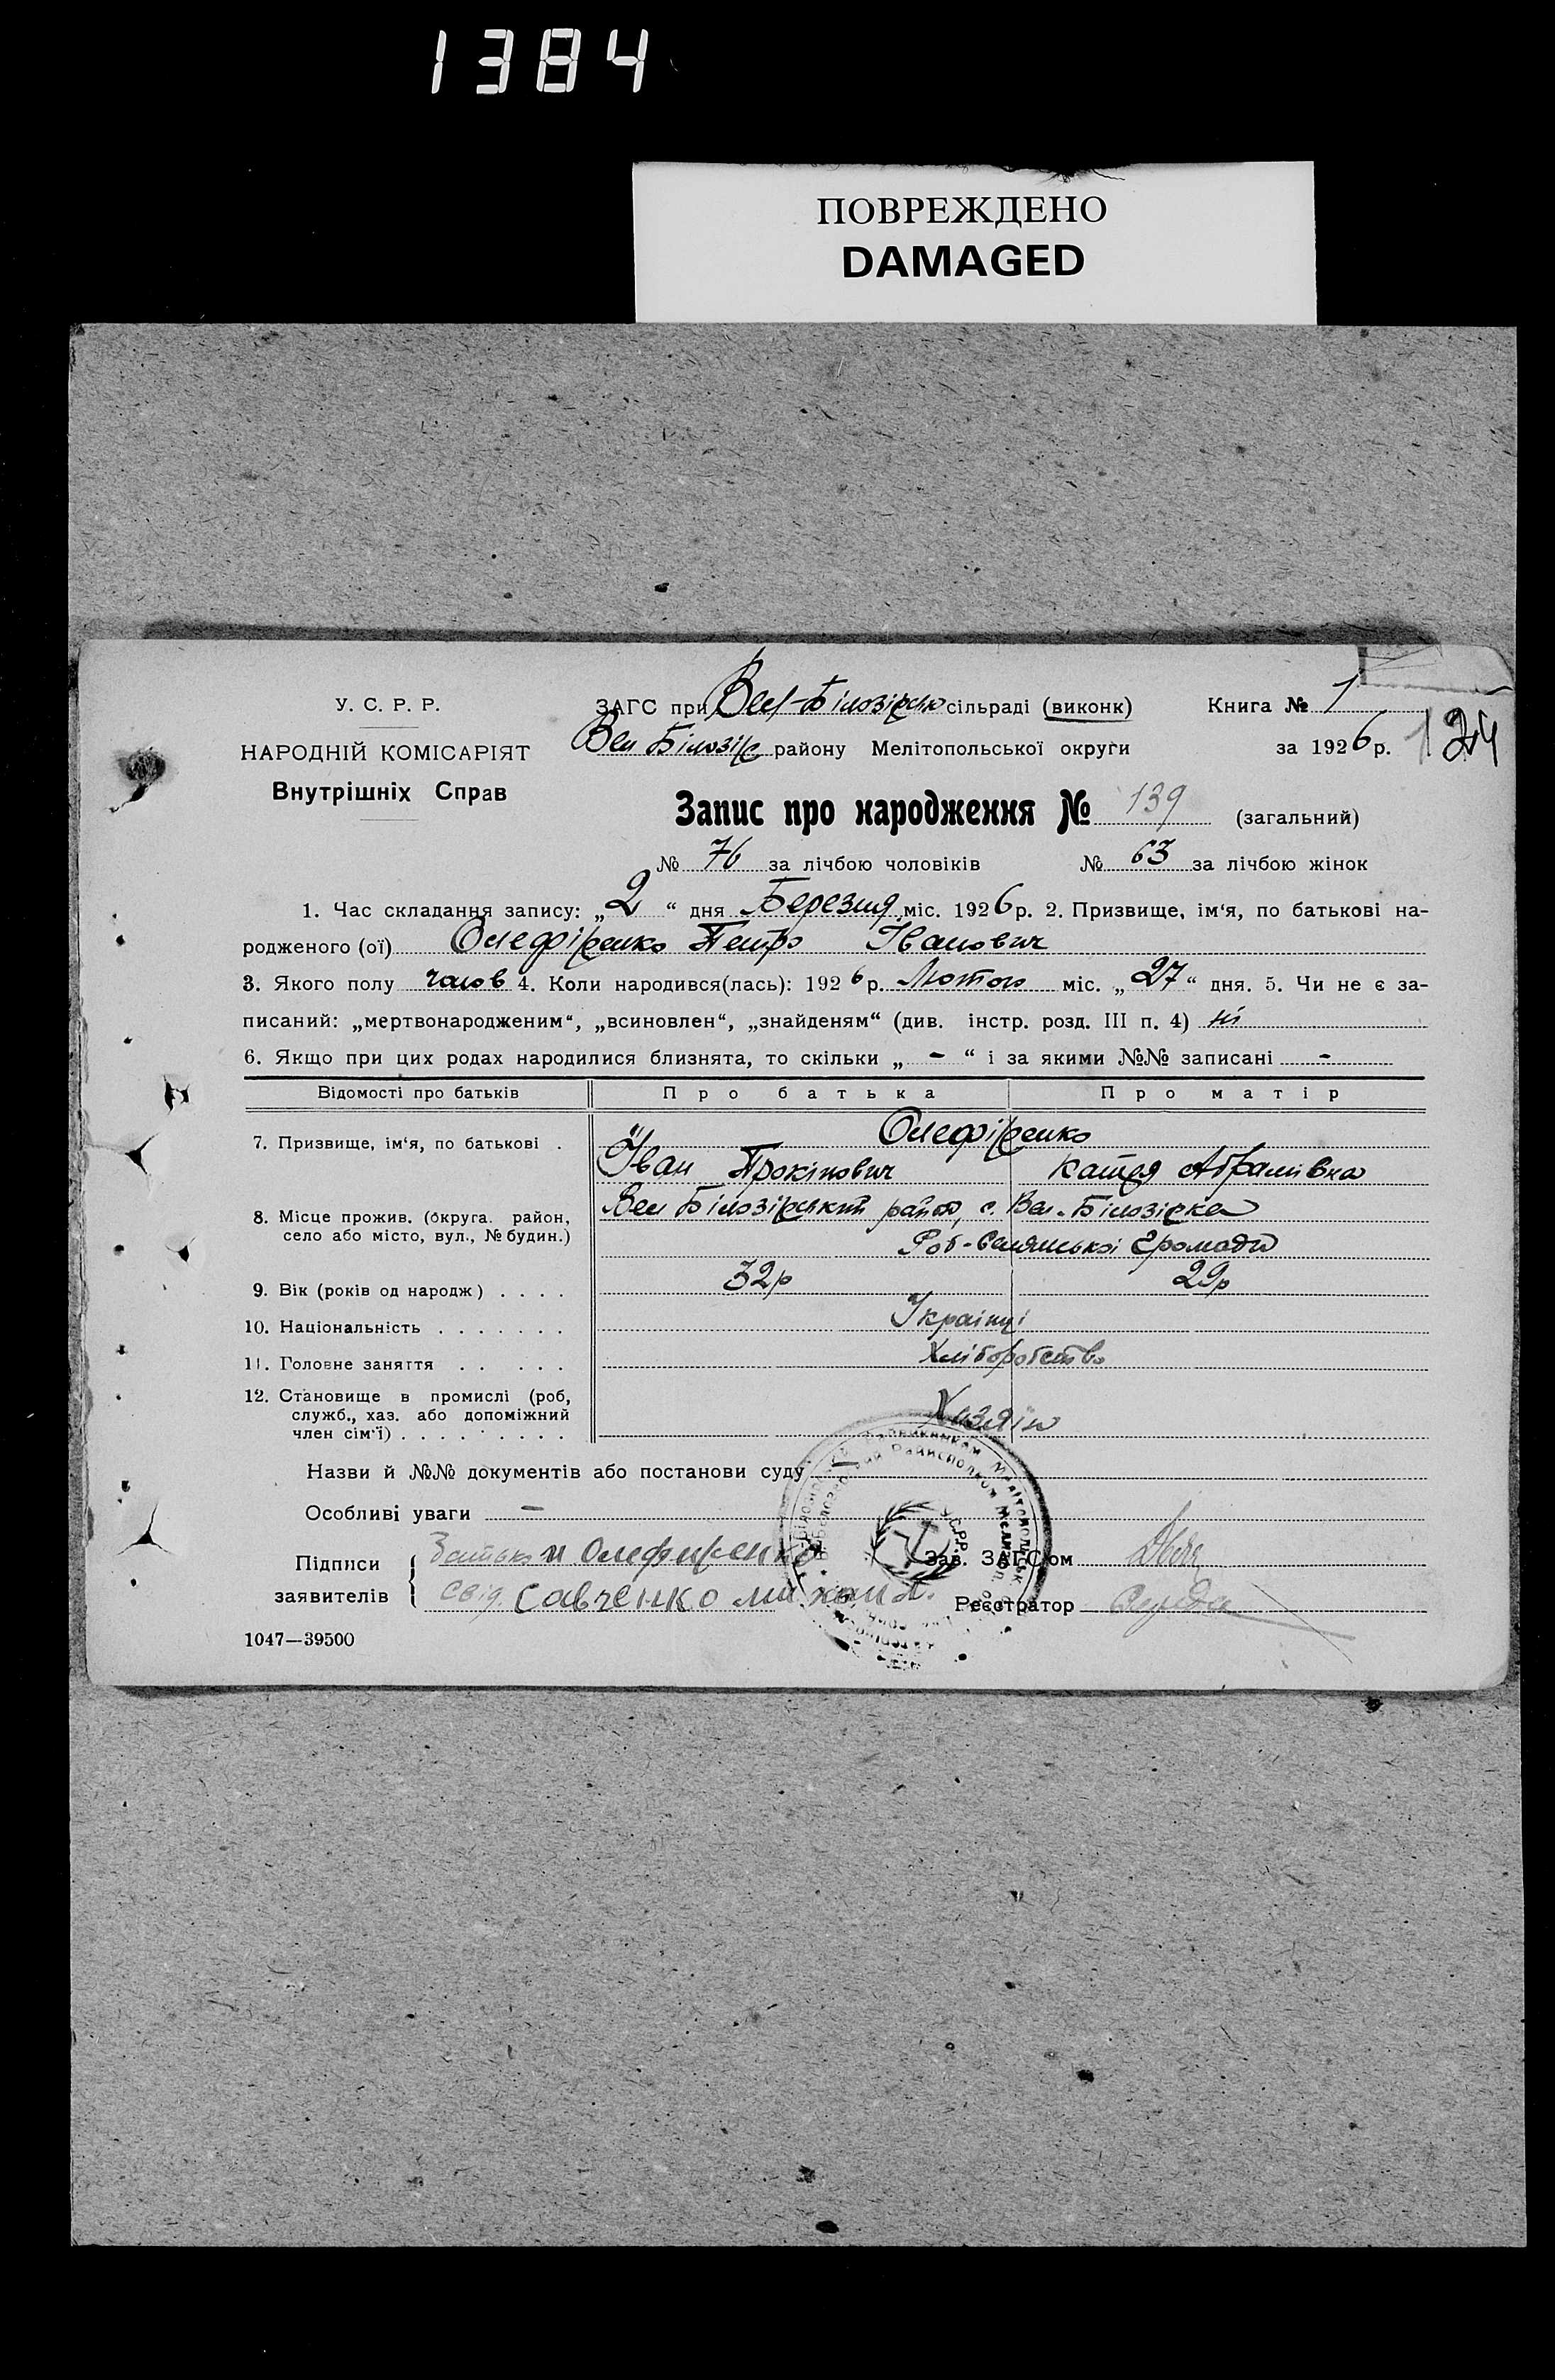 1384
ПОВРЕЖДЕНО
DAMAGED
У. С. Р. Р.
НАРОДНІЙ КОМІСАРІЯТ
Внутрішніх Справ
ЗАГС при Вел-Білозірськ сільраді (виконк) Книга № 1
Вел Білозір району Мелітопольської округи за 1926 р. 124
Запис про народження № 139 (загальний)
№ 76 за лічбою чоловіків № 63 за лічбою жінок
1. Час складання запису: „2“ дня Березня міс. 1926 р. 2. Призвище, ім‘я, по батькові на-
родженого (ої) Олефіренко Петро Іванович
3. Якого полу чолов 4. Коли народився(лась): 1926 р. Лютого міс. „27“ дня. 5. Чи не є за-
писаний: „мертвонародженим“, „всиновлен“, „знайденям“ (див. інстр. розд. III п. 4) ні
6. Якщо при цих родах народилися близнята, то скільки „ - “ і за якими №№ записані -
Відомості про батьків Про батька Про матір
7. Призвище, ім‘я, по батькові . Олефіренко
Іван Прокіпович Катря Абрамівна
8. Місце прожив. (округа. район, село або місто, вул., № будин.) Вел Білозірський район, с. Вел. Білозірка
Роб-Селянської Громади
9. Вік (років од народж) . . . . 32р 29р
10. Національність . . . . . . . Українці
11. Головне заняття . . . . . Хліборобство
12. Становище в промислі (роб, служб., хаз. або допоміжний член сім‘ї) . . . . . . . . . Хазяїн
Назви й №№ документів або постанови суду
Особливі уваги —
Підписи заявителів { Батько и Олефиренко Зав. ЗАГС‘ом
Свід. Савченко Реєстратор Середа
У.С.Р.Р.
1047—39500